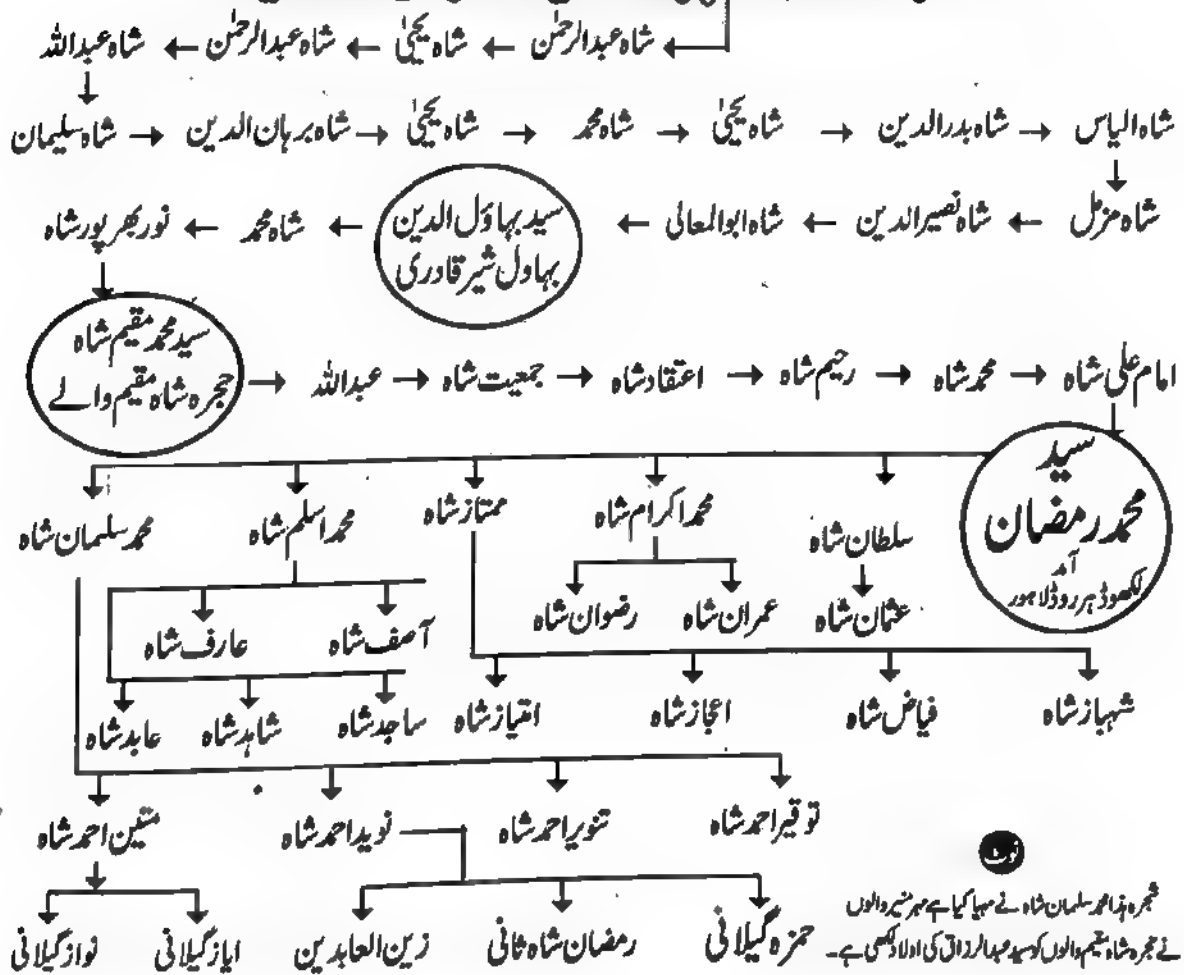 شاہ عبدالرحمٰن ← شاہ یحیٰی ← شاہ عبدالرحمٰن ← شاہ عبداللہ
شاہ الیاس → شاہ بدرالدین → شاہ یحیٰی → شاہ محمد → شاہ یحیٰی → شاہ برہان الدین → شاہ سلیمان
شاہ مزمل ← شاہ نصیرالدین ← شاہ ابوالمعالی ← سید بہاؤل الدین بہاول شیر قادری ← شاہ محمد ← نور بھرپور شاہ
سید محمد مقیم شاہ
حجرہ شاہ مقیم والے
امام علی شاہ → محمد شاہ → رحیم شاہ → اعتقاد شاہ → جمعیت شاہ → عبداللہ
سید
محمد رمضان
آمد
لکھوڈہر روڈ لاہور
سلطان شاہ محمد اکرام شاہ ممتاز شاہ محمد اسلم شاہ محمد سلیمان شاہ
عثمان شاہ عمران شاہ رضوان شاہ آصف شاہ عارف شاہ
شہباز شاہ فیاض شاہ اعجاز شاہ امتیاز شاہ ساجد شاہ شاہد شاہ عابد شاہ
توقیر احمد شاہ تنویر احمد شاہ نوید احمد شاہ متین احمد شاہ
حمزہ گیلانی رمضان شاہ ثانی زین العابدین ایاز گیلانی نواز گیلانی
نوٹ
شجرہ ہذا محمد سلمان شاہ نے مہیا کیا ہے مہر منیر والوں
نے حجرہ شاہ مقیم والوں کو سید عبدالرزاق کی اولاد لکھی ہے۔